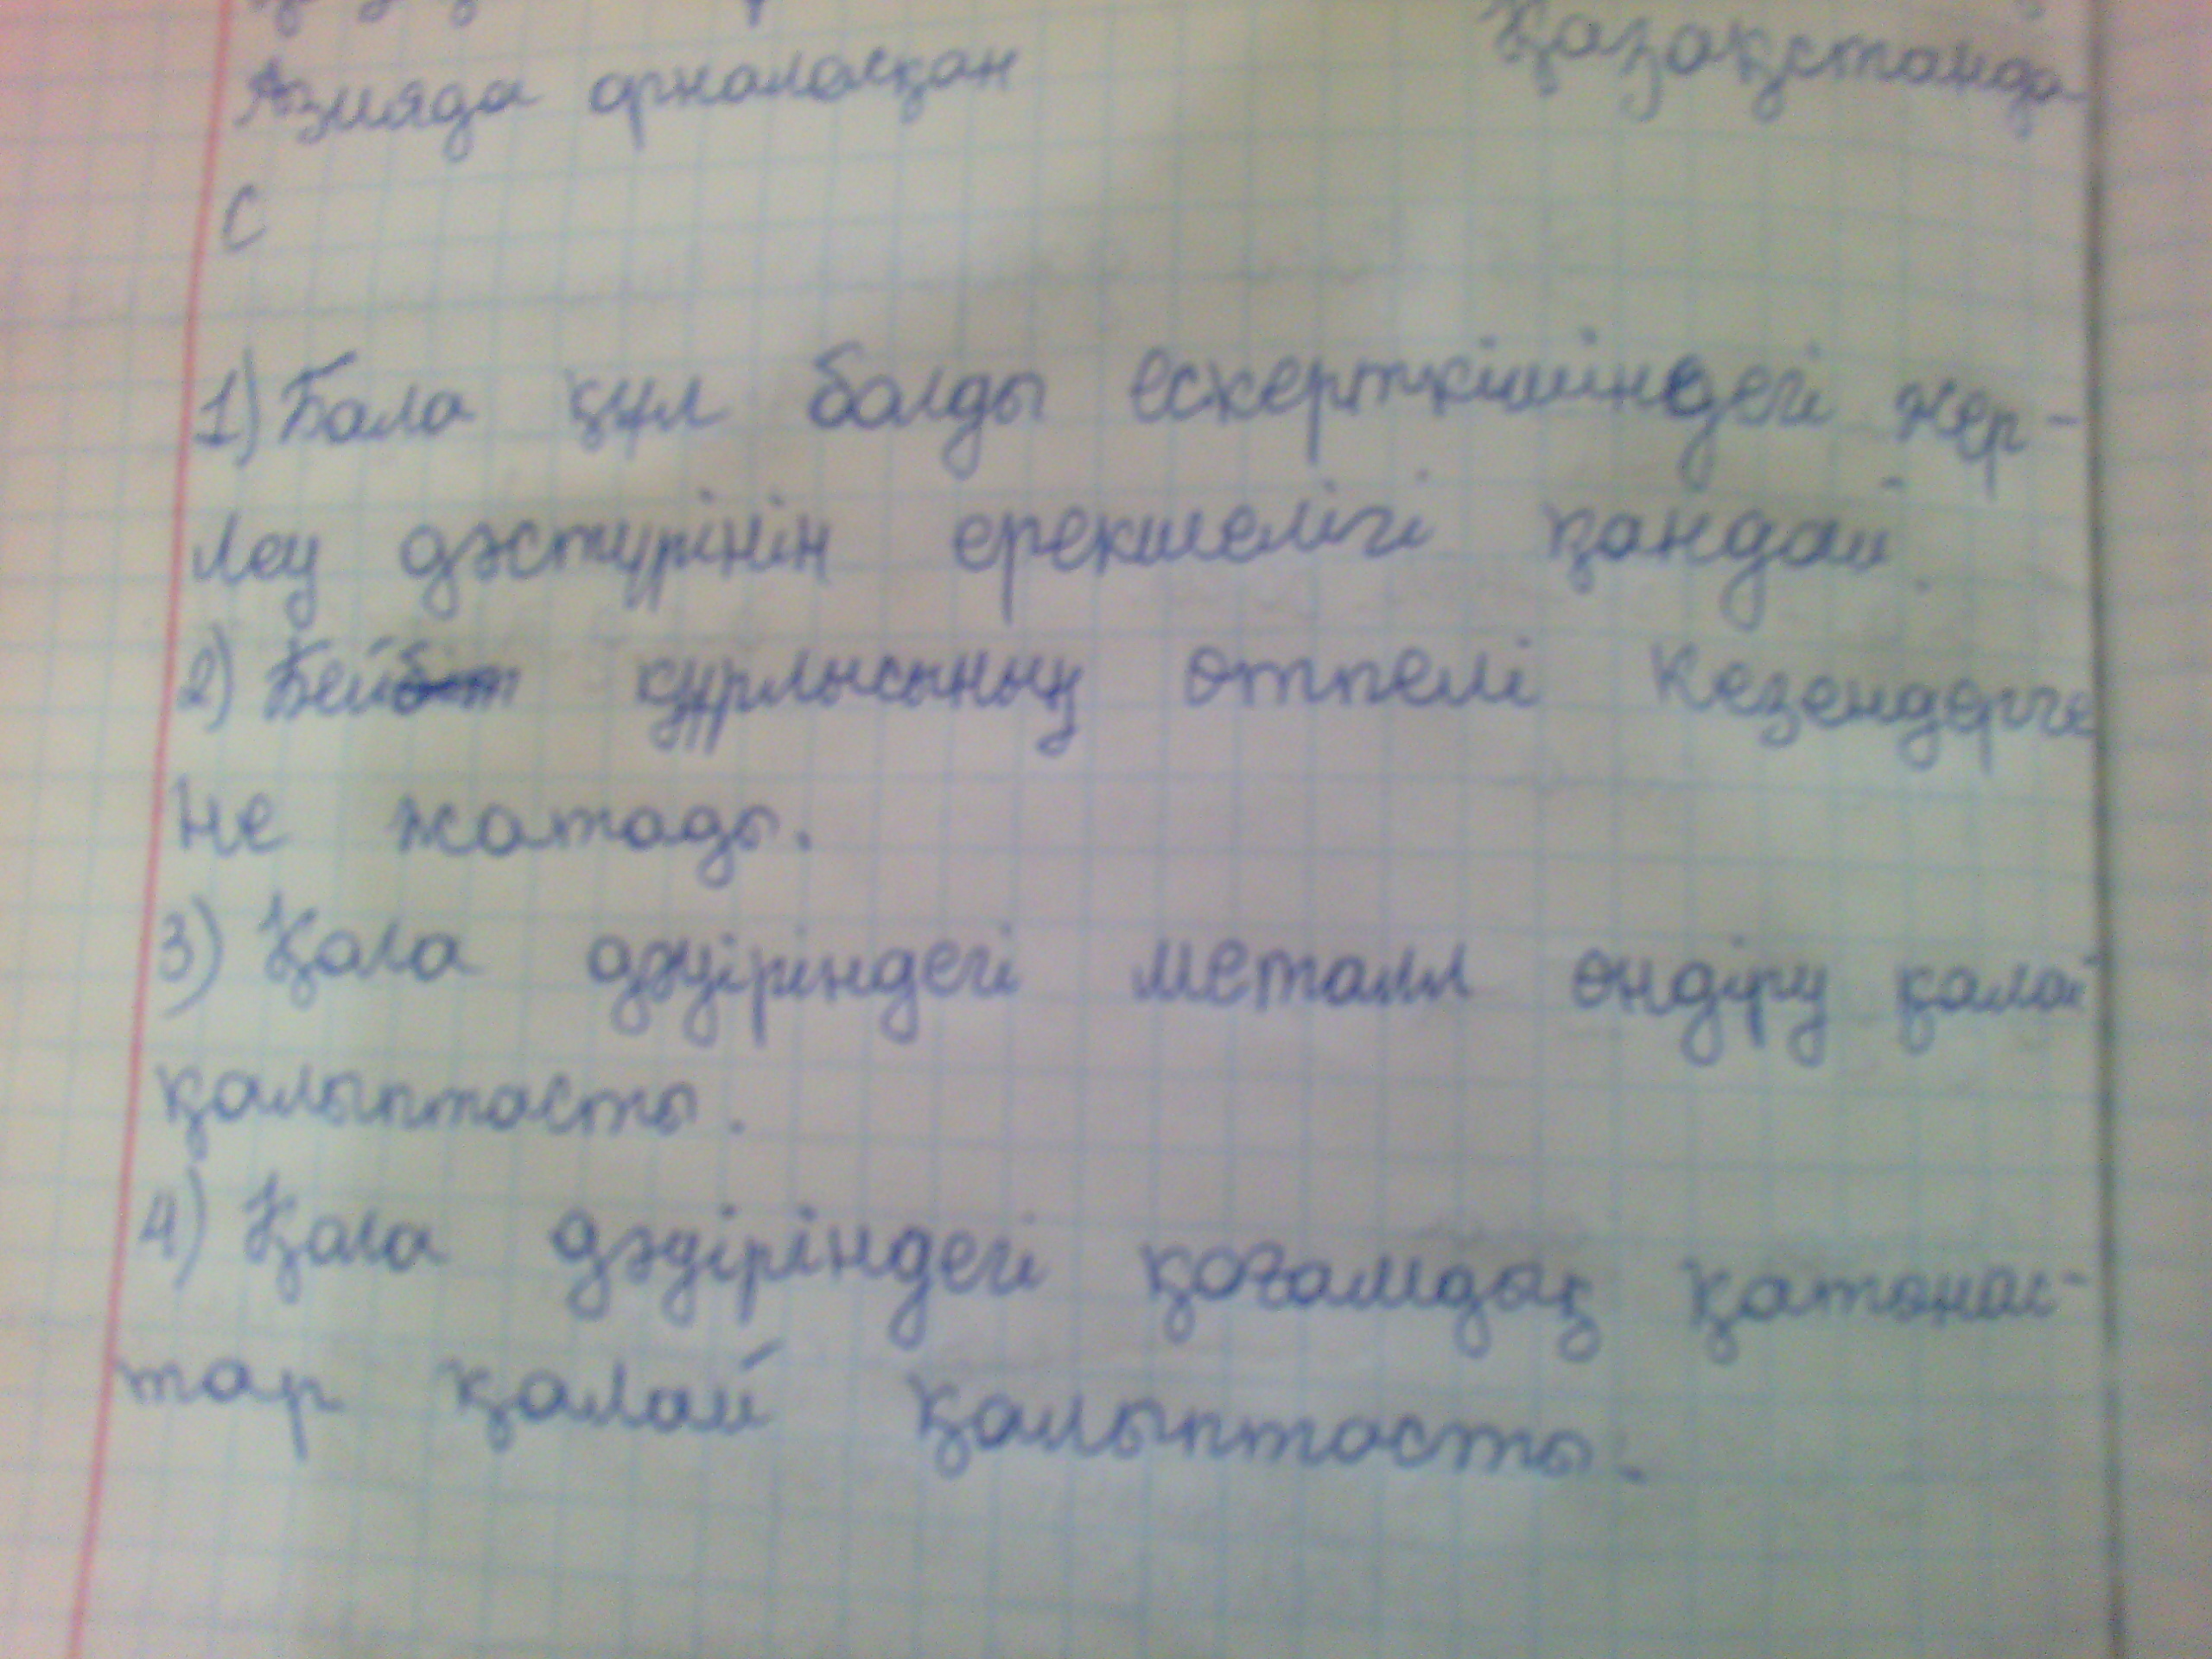 Азияда орналасқан Қазақстанда
С
1) Бала құл болды ескерткішіндегі жер-
леу дәстүрінің ерекшелігі қандай.
2) Бейбіт құрлысының өтпелі кезендерге
не жатады.
3) Қола дәуіріндегі металл өндіру қалай
қалыптасты.
4) Қола дәуіріндегі қоғамдық қатынас-
тар қалай қалыптасты.